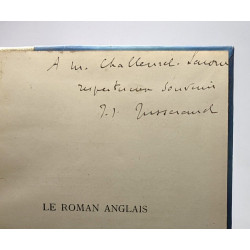 A M. Challemel-Lacour
respectueux souvenir
J. J. Jusserand
LE ROMAN ANGLAIS